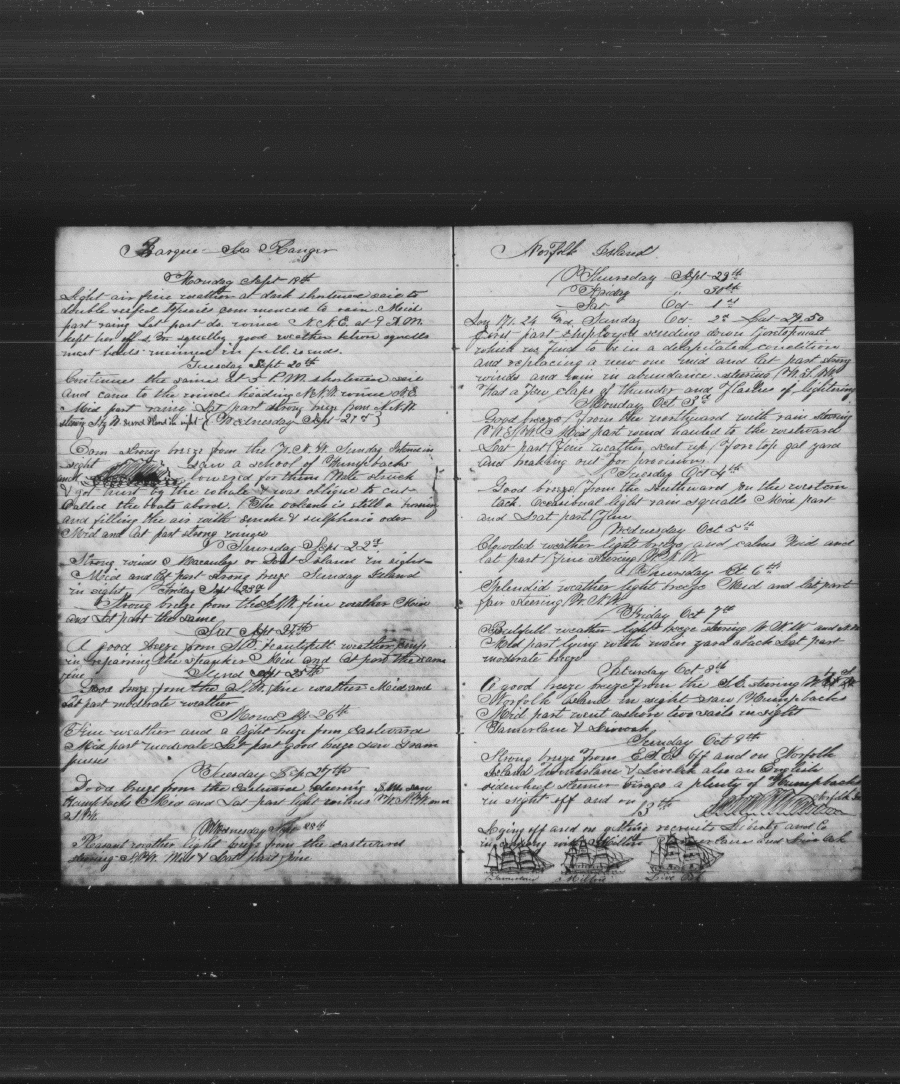 Barque Sea Ranger
Monday Sept 19th
Light air fine weather at dark shortened sail to
double reefed topsails commenced to rain Mid
part rainy Lat part do. wind N.N.E. at 9 A.M.
kept her off squally good weather when squally
Tuesday Sept 20th
Continues the same at 5 P.M. shortened sail
and came to the wind heading N.N.W. wind N.E.
Mid part rainy Lat part strong breze from N.N.W.
Wednesday Sept 21st
Com strong breze from the N.N.W. Sunday Island in
sight saw a school of Humpbacks
lowered for them Mate struck
& got hurt by the whale & was oblige to cut
Called the boats abord. The volcano is still a burning
and filling the air with smoke & sulpheric oder
Mid and Lat part strong
Thursday Sept 22d
Strong winds Macauley or Island in sight
Mid and Lat part strong breze Sunday Island
in sight Friday Sept 23d
Strong breze from the N.W. fine weather Mid
and Lat part the same
Sat Sept 24th
A good breze from beautifull weather emp
in repairing the spanker Mid and Lat part the same
fine Sund Sept 25th
Good breze from the S.W. fine weather Mid and
Lat part moderate weather
Mond Sep 26th
Fine weather and a light breze from Eastward
Mid part moderate Lat part good breze saw
Thuesday Sep 27th
Good breze from the Eastward steering saw
Humpbacks Mid and Lat part light
Wednesday Sept 28th
Pleasant weather light breze from the eastward
steering Mid & Lat part fine
Norfolk Island
Thursday Sept 29th
Friday " 30th
Sat Oct 1st
Lon 171.24 Sunday Oct 2d Lat 29.50
First part employed sending down foretopmast
which we find to be in a decapitated condition
and replacing a new one Mid and Lat part strong
winds and rain in abundance steering W.S.W.
Had a few claps of thunder and flashes of lightning
Monday Oct 3d
Good breeze from the northward with rain steering
Mid part wind hauled to the westward
Lat part fine weather sent up fore top gal yard
and breaking out for provision
Tuesday Oct 4th
Good breze from the southward on the western
tack. Occasional light rain squalls Mid part
and Lat part fine
Wednesday Oct 5th
Clouded weather light breze and calms Mid and
Lat part fine steering W.N.W.
Thursday Oct 6th
Splendid weather light breze Mid and Lat part
fair steering W.N.W.
Friday Oct 7th
weather light breze steering W.N.W. and
Mid part lying with main yard aback Lat part
moderate breze
Saturday Oct 8th
A good breze from the S.E. steering
Norfolk Island in sight saw Humpbacks
Mid part went ashore two sails in sight
Tamerlane & Liveoak
Sunday Oct 9th
Strong breze from off and on Norfolk
Island Tamerlane & Liveoak also an English
steamer a plenty of Humpbacks
in sight off and on
13th
Laying off and on getting recruits
Tamerlane Milton Live Oak